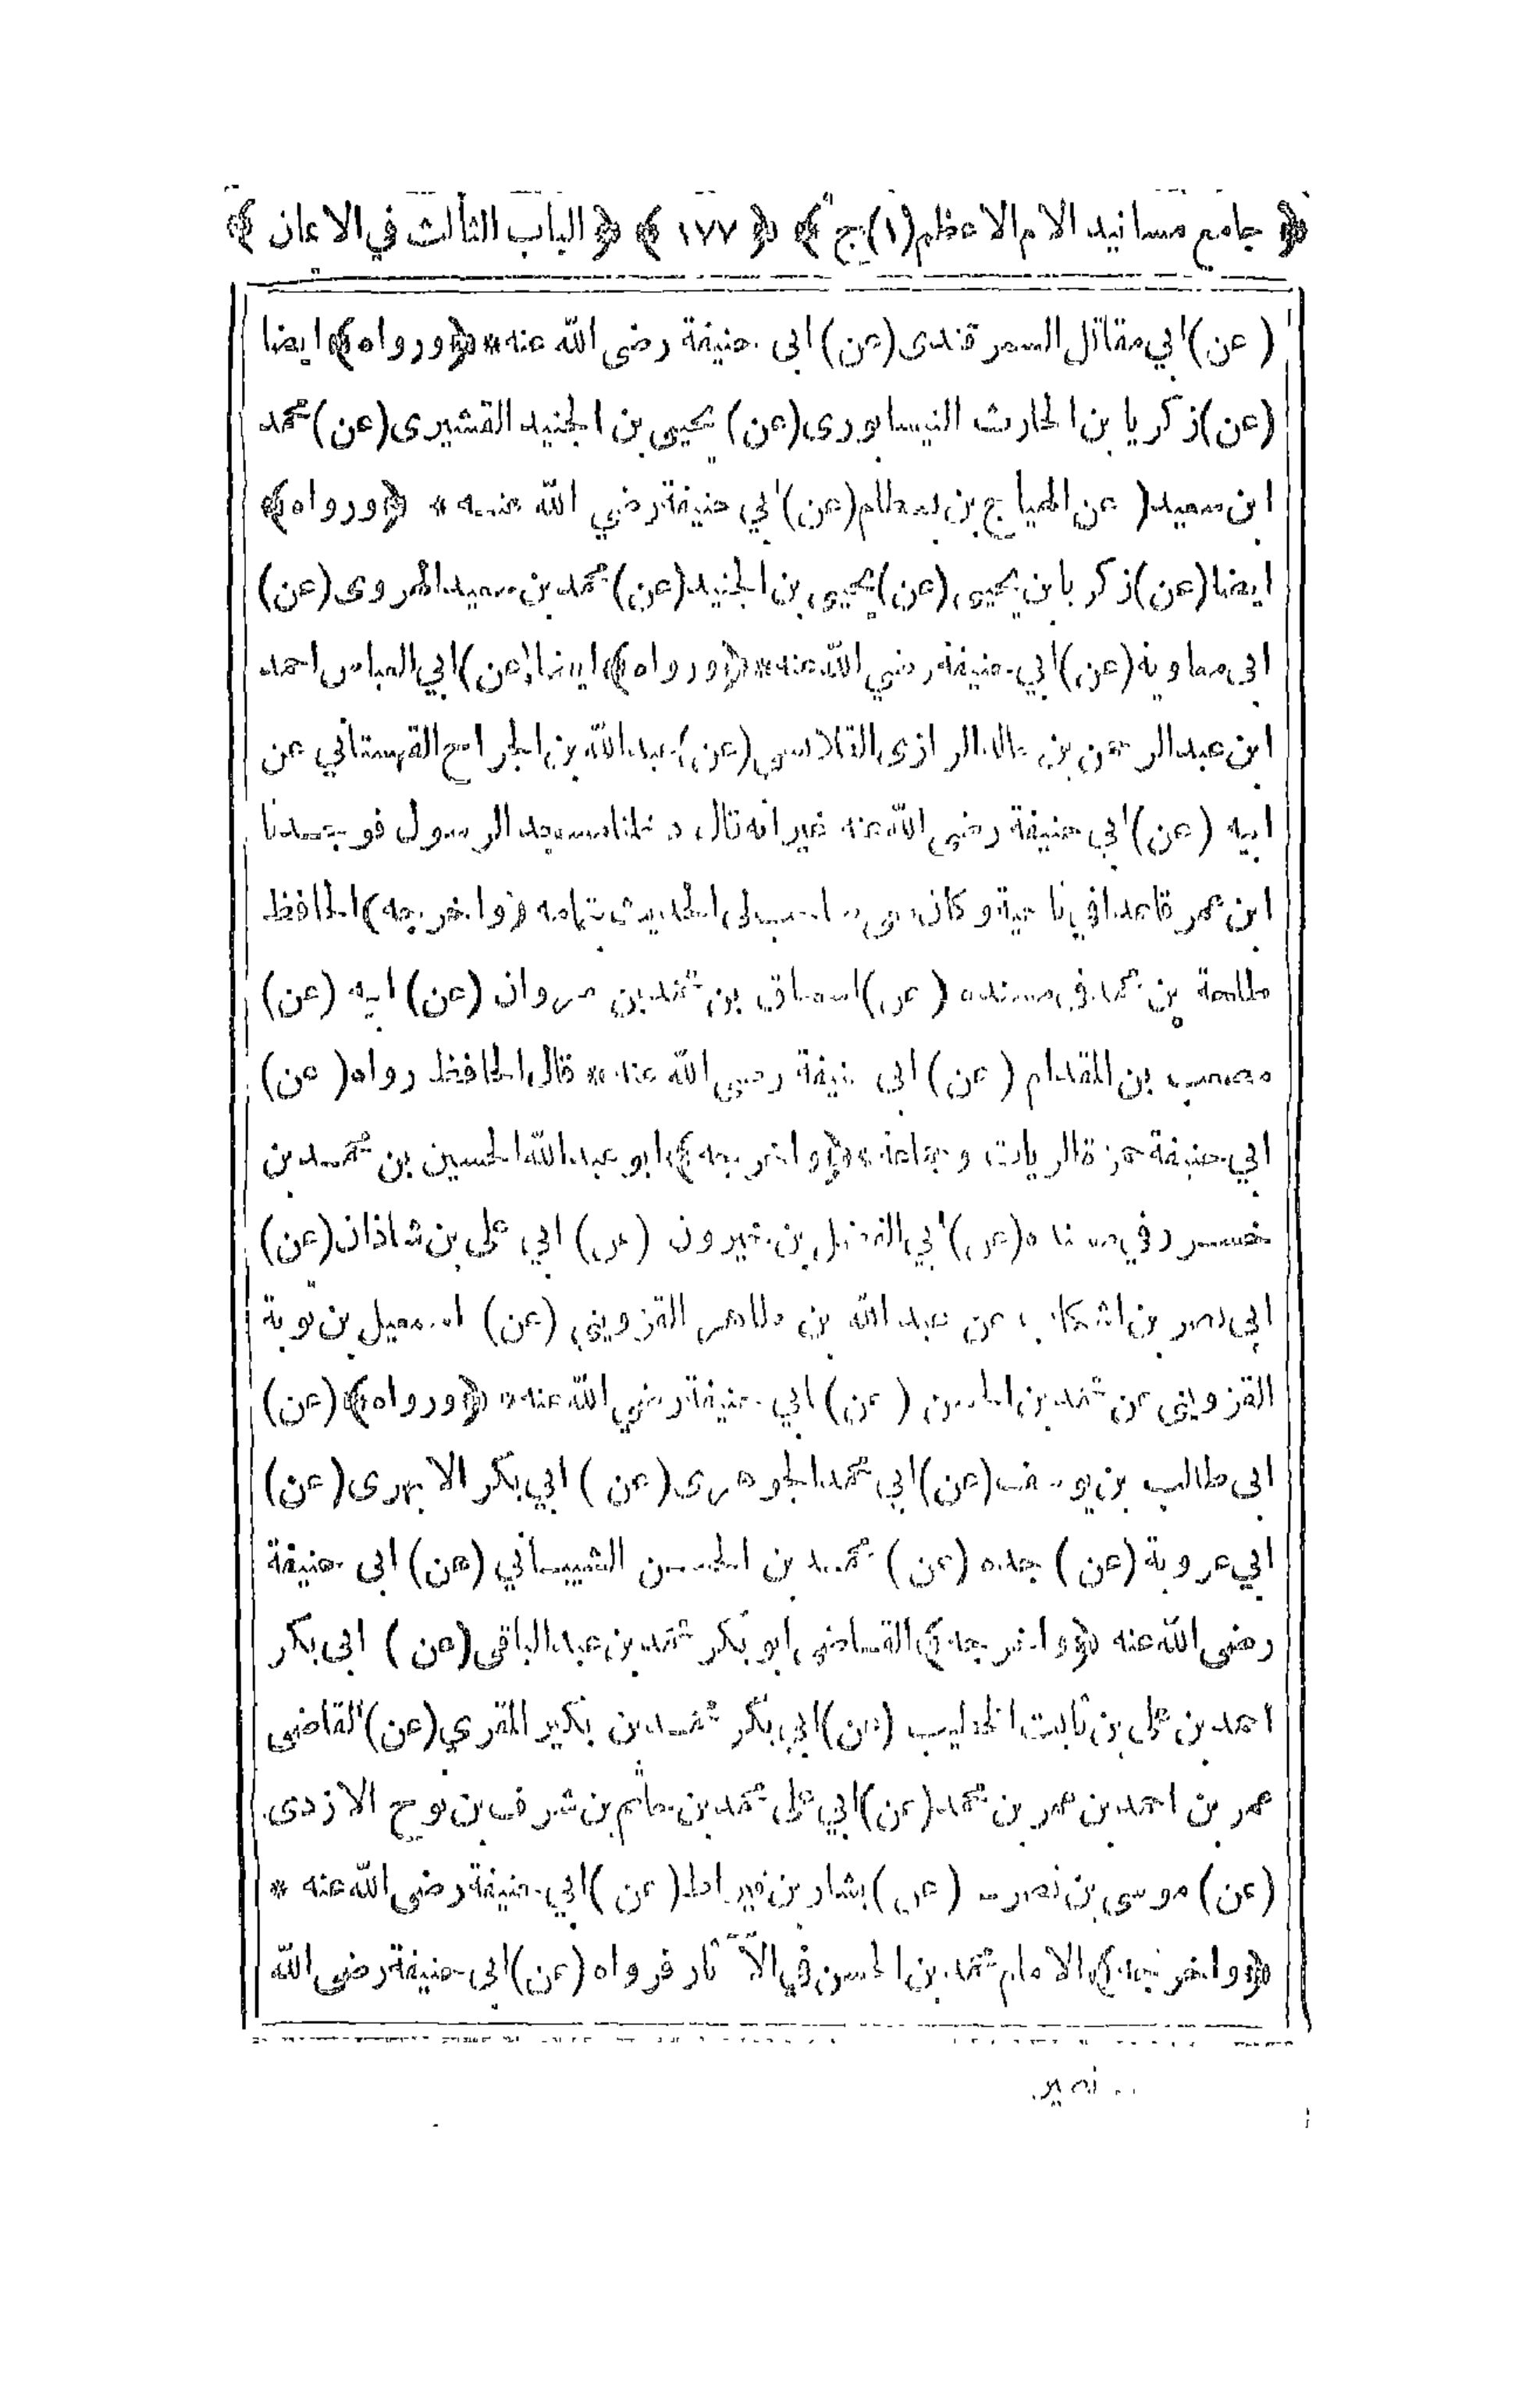 ﴿ جامع مسانيد الامام الاعظم (١) ج ﴾ ﴿ ١٧٧ ﴾ ﴿ الباب الثالث في الايمان ﴾
(عن) ابي مقاتل السمرقندى (عن) ابى حنيفة رضى الله عنه * ﴿ ورواه ﴾ ايضا
(عن) زكريا بن الحارث النيسابورى (عن) يحيى بن الجنيد القشيرى (عن) محمد
ابن سعيد (عن الهياج بن بسطام (عن) ابي حنيفة رضي الله عنه * ﴿ ورواه ﴾
ايضا (عن) زكريا بن يحيى (عن) يحيى بن الجنيد (عن) محمد بن سعيد الهروى (عن)
ابى معاوية (عن) ابي حنيفة رضي الله عنه * ﴿ ورواه ﴾ ايضا (عن) ابي العباس احمد
ابن عبد الرحمن بن خالد الرازى القلانسى (عن) عبد الله بن الجراح القهستاني عن
ابيه (عن) ابي حنيفة رضى الله عنه غير انه قال دخلنا مسجد الرسول فوجدنا
ابن عمر قاعدا في ناحية وكان معى صاحب لى الحديث بتمامه ﴿ واخرجه ﴾ الحافظ
طلحة بن محمد فى مسنده (عن) اسحاق بن محمد بن مروان (عن) ابيه (عن)
مصعب بن المقدام (عن) ابى حنيفة رضى الله عنه * قال الحافظ رواه (عن)
ابي حنيفة حمزة الزيات وجماعة * ﴿ واخرجه ﴾ ابو عبد الله الحسين بن محمد بن
خسرو في مسنده (عن) ابي الفضل بن خيرون (عن) ابي على بن شاذان (عن)
ابي نصر بن اشكاب عن عبد الله بن طاهر القزويني (عن) اسمعيل بن توبة
القزوينى عن محمد بن الحسن (عن) ابي حنيفة رضي الله عنه * ﴿ ورواه ﴾ (عن)
ابى طالب بن يوسف (عن) ابي محمد الجوهرى (عن) ابي بكر الابهرى (عن)
ابي عروبة (عن) جده (عن) محمد بن الحسن الشيباني (عن) ابى حنيفة
رضى الله عنه ﴿ واخرجه ﴾ القاضى ابو بكر محمد بن عبد الباقى (عن) ابى بكر
احمد بن على بن ثابت الخطيب (عن) ابي بكر محمد بن بكير المقري (عن) القاضى
عمر بن احمد بن عمر بن محمد (عن) ابي على محمد بن حاتم بن شرف بن نوح الازدى
(عن) موسى بن نصر (عن) بشار بن قيراط (عن) ابي حنيفة رضى الله عنه *
﴿ واخرجه ﴾ الامام محمد بن الحسن في الآثار فرواه (عن) ابى حنيفة رضى الله